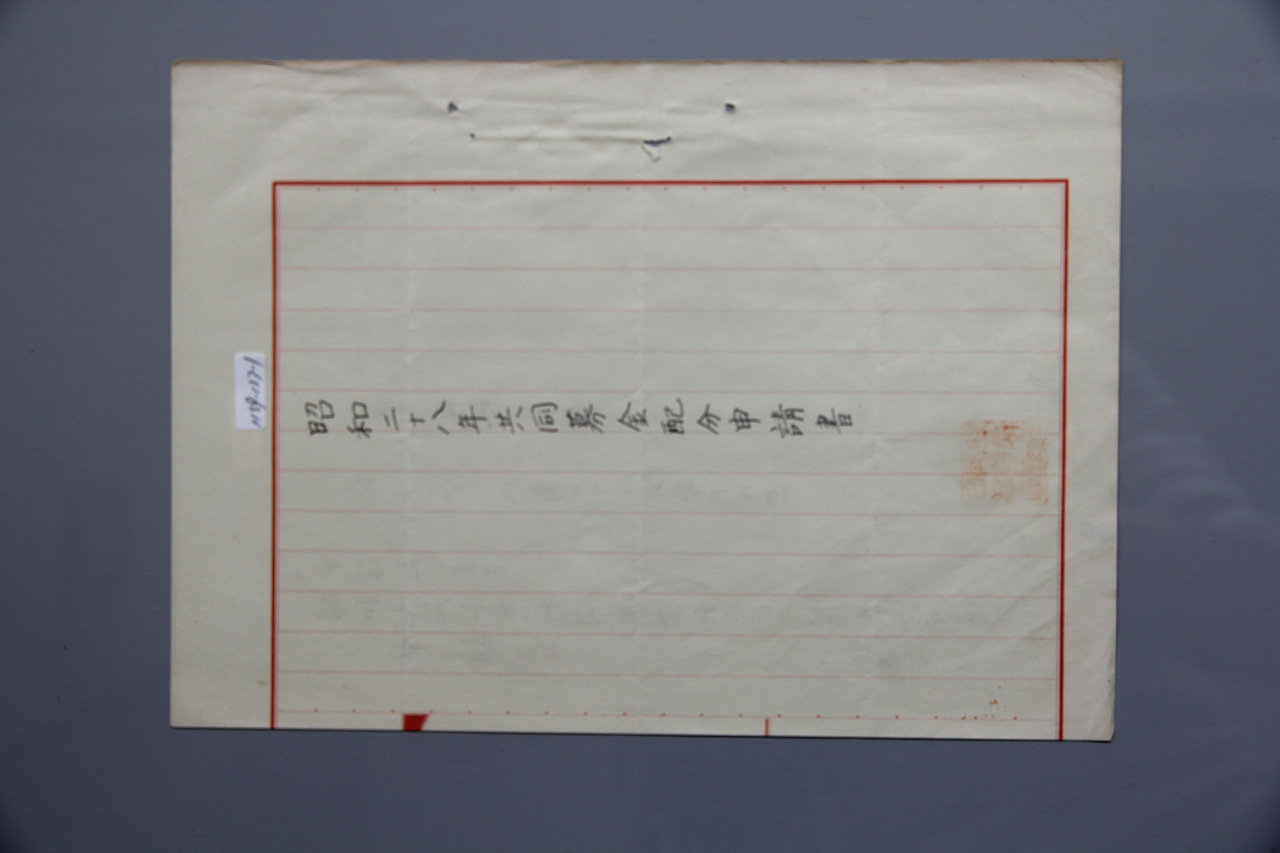 昭和二十八年共同募金配分申請書